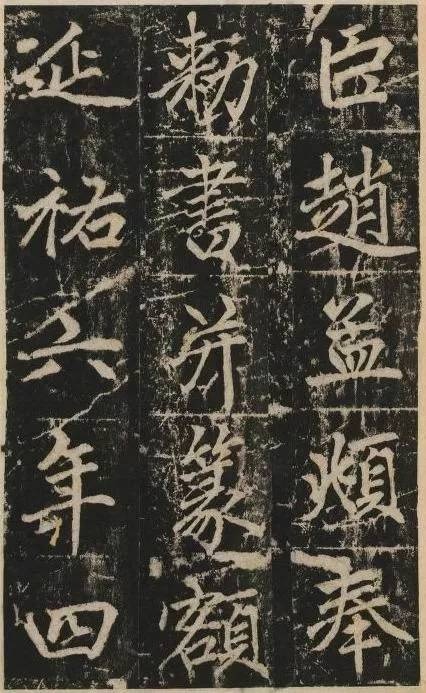 臣趙孟頫奉
勑書并篆額
延祐六年四